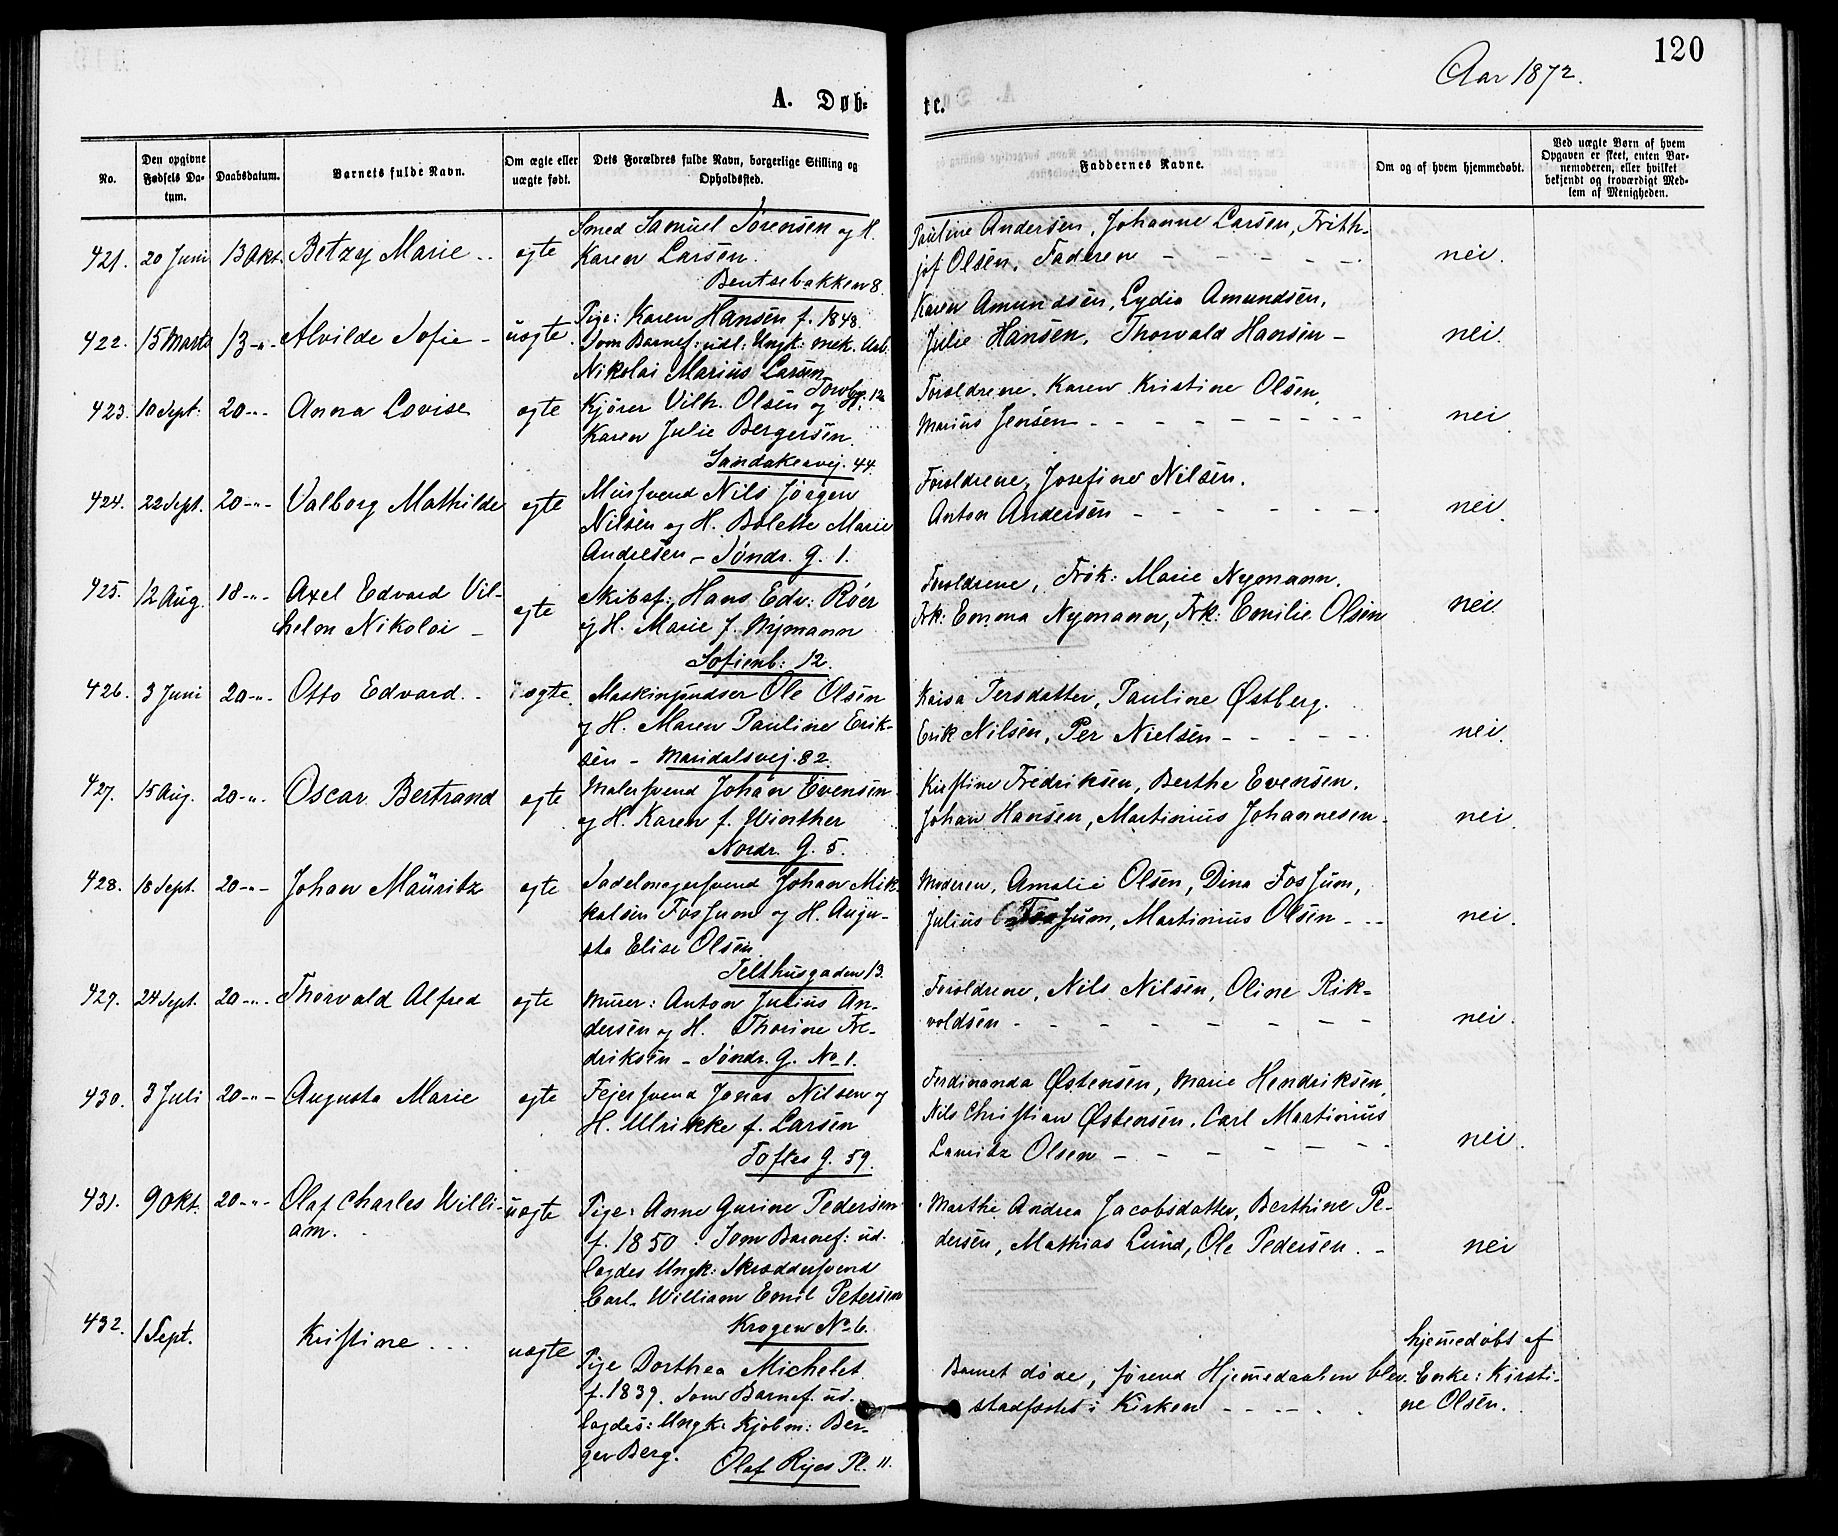 120
Aar 1872.
A. Døb= tc.
No.
Den opgivne Fødsels Da-tum.
Daabsdatum.
Barnets fulde Navn.
Om ægte eller uægte født.
Dets Forældres fulde Navn, borgerlige Stilling og Opholdssted.
Faddernes Navne.
Om og af hvem hjemmedøbt.
Ved uægte Børn af hvem Opgaven er skeet, enten Bar-nemoderen, eller hvilket bekjendt og troværdigt Med-lem af Menigheden.
421. 20 Juni 13 Okt. Betzy Marie ægte
Smed Samuel Sørensen og H.
Karen Larsen.
Bentsebakken 8.
Pauline Andersen, Johanne Larsen, Frith-
jof Olsen, Faderen
nei.
422. 15 Marts 13-"- Alvilde Sofie - uægte
Pige: Karen Hansen f. 1848.
Som Barnef: udl: Ungk: mek. Arb.
Nikolai Marius Larsen
Torvbg. 12
Karen Amundsen, Lydia Amundsen,
Julie Hansen, Thorvald Hansen -
nei.
423. 10 Sept: 20-"- Anna Lovise ægte
Kjører Vilh. Olsen og H.
Karen Julie Bergersen.
Sandakervej. 44.
Forældrene, Karen Kristine Olsen,
Marius Jensen
nei
424. 22 Sept. 20-"- Valborg Mathilde ægte
Mursvend Nils Jørgen
Nilsen og H. Bolette Marie
Andresen - Søndr. G. 1.
Forældrene, Josefine Nilsen,
Anton Andersen
nei.
425. 12 Aug. 18-"- Axel Edvard Vil-
helm Nikolai - ægte
Skibsf: Hans Edv: Röer
og H. Marie f. Nymann
Sofienb: 12.
Forældrene, Frøk: Marie Nymann,
Frk: Emma Nymann, Frk: Emilie Olsen
nei.
426. 3 Juni 20-"- Otto Edvard. - ægte.
Maskinpudser Ole Olsen
og H. Maren Pauline Erik-
sen - Maridalsvej. 82.
Kaisa Persdatter, Pauline Østberg.
Erik Nilsen, Per Nielsen
nei.
427. 15 Aug. 20-"- Oscar Bertrand ægte
Malersvend Johan Evensen
og H. Karen f. Winther
Nordr. G. 5.
Kirstine Fredriksen, Berthe Evensen,
Johan Hansen, Martinius Johannesen
nei.
428. 18 Sept. 20-"- Johan Mauritz ægte
Sadelmagersvend Johan Mik-
kelsen Fossum og H. Augu-
sta Elise Olsen
Telthusgaden 13.
Moderen, Amalie Olsen, Dina Fossum,
Julius Fossum, Martinius Olsen
nei.
429. 24 Sept. 20-"- Thorvald Alfred ægte
Murer: Anton Julius An-
dersen og H. Thorine Fre-
driksen - Søndr. G. No 1.
Forældrene, Nils Nilsen, Oline Rik-
voldsen
nei.
430. 3 Juli 20-"- Augusta Marie ægte
Fejersvend Jonas Nilsen og
H. Ulrikke f. Larsen
Toftes G. 59.
Ferdinanda Østensen, Marie Hendriksen,
Nils Christian Østensen, Carl Martinius
Lauritz Olsen
nei.
431. 9 Okt. 20-"- Olaf Charles Willi-
am. uægte
Pige: Anne Gurine Pedersen
f. 1850. Som Barnef: ud-
lagdes Ungk: Skræddersvend
Carl William Emil Petersen
Krogen No 6.
Marthe Andrea Jacobsdatter, Berthine Pe-
dersen, Mathias Lund, Ole Pedersen.
nei
432. 1 Sept. Kristine uægte
Pige Dorthea Michelet
f. 1839. Som Barnef. ud-
lagdes: Ungk: Kjøbm: Ber-
ger Berg.
Olaf Ryes Pl. 11.
Barnet døde, førend Hjemedaaben blev
stadfæstet i Kirken
hjemedøbt af
Enke: Kirsti-
ne Olsen.